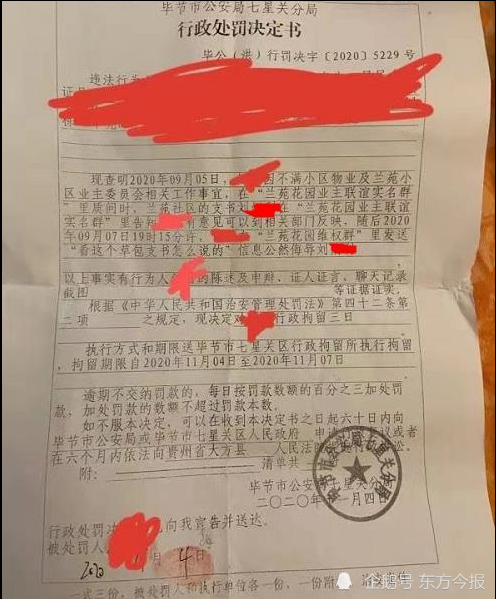 毕节市公安局七星关分局
行政处罚决定书
毕公（洪）行罚决字〔2020〕5229号
违法行为
现查明2020年09月05日，因不满小区物业及兰苑小
区业主委员会相关工作事宜，在“兰苑花园业主联谊实名群”
里质问时，兰苑社区的支书刘在“兰苑花园业主联谊
实名群”里告知有意见可以到相关部门反映，随后2020
年09月07日19时15分许，在“兰苑花园维权群”里发送
“看这个草包支书怎么说的”信息公然侮辱刘
以上事实有行为人的陈述及申辩、证人证言、聊天记录
截图等证据证实。
根据《中华人民共和国治安管理处罚法》第四十二条第
二项之规定，现决定对行政拘留三日
执行方式和期限送毕节市七星关区行政拘留所执行拘留
，拘留期限自2020年11月04日至2020年11月07日
逾期不交纳罚款的，每日按罚款数额的百分之三加处罚
款，加处罚款的数额不超过罚款本数。
如不服本决定，可以在收到本决定书之日起六十日内向
毕节市公安局或毕节市七星关区人民政府申请行政复议或者
在六个月内依法向贵州省大方县人民法院提起行政诉讼。
附：清单共
毕节市公安局七星关分局
二〇二〇年十一月四日
行政处罚决定已向我宣告并送达。
被处罚人
2020 月4日
一式三份，被处罚人和执行单位各一份，一份附
企鹅号 东方今报